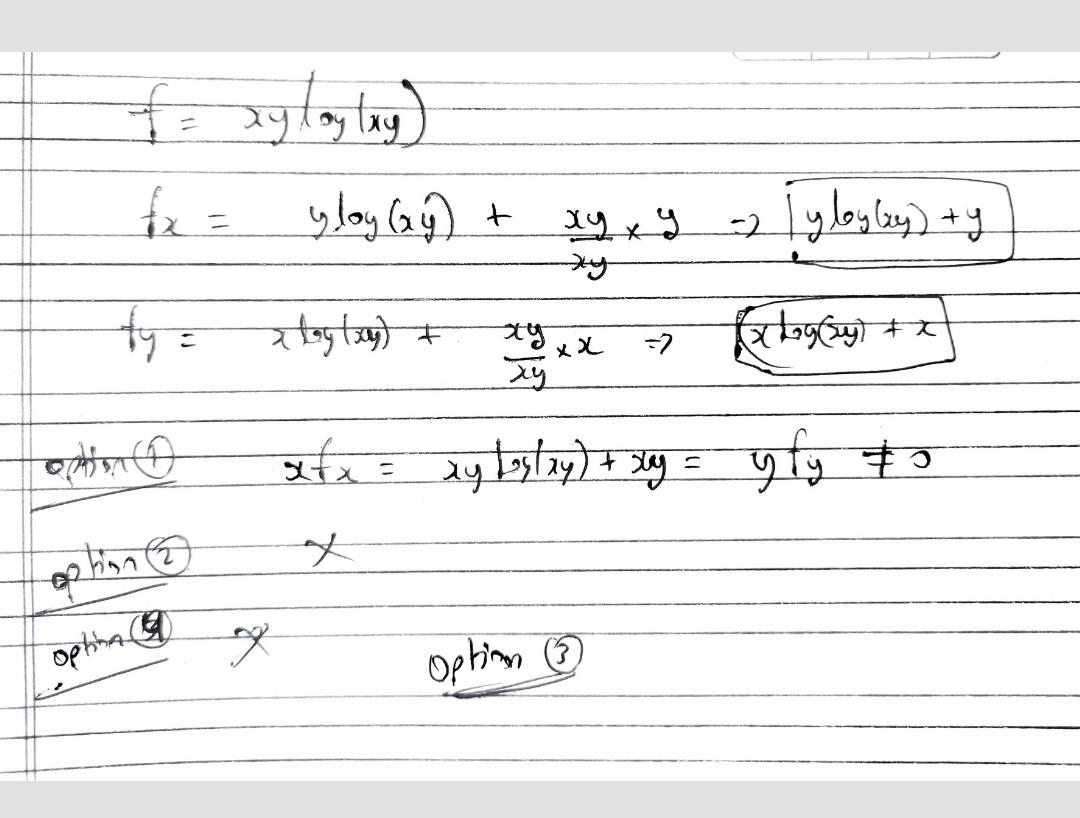 f = xy log(xy)
fx = y log(xy) + xy/xy × y ⇒ y log(xy) + y
fy = x log(xy) + xy/xy × x ⇒ x log(xy) + x
option ① xfx = xy log(xy) + xy = yfy ≠ 0
option ② ×
option ④ ×
option ③